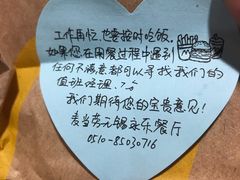 工作再忙,也要按时吃饭,
如果您在用餐过程中遇到
任何不满意都可以寻找我们的
值班经理,
我们期待您的宝贵意见!
麦当劳无锡永乐餐厅
0510-85030716